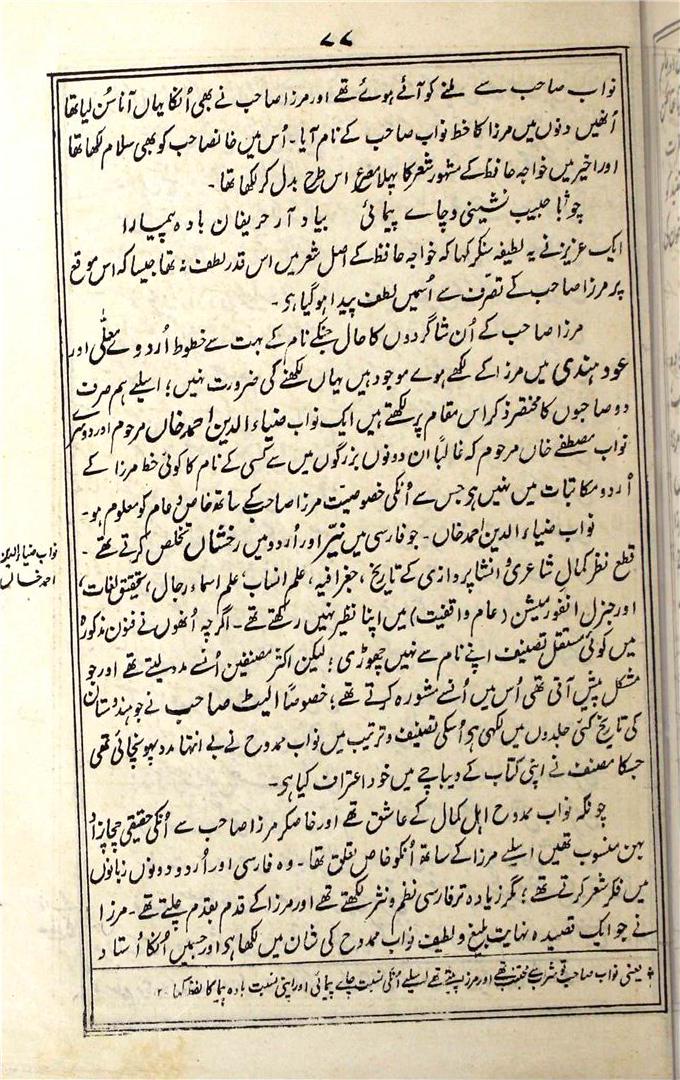 ۷۷
نواب صاحب سے ملنے کو آئے ہوئے تھے اور مرزا صاحب نے بھی اُنکا یہاں آنا سُن لیا تھا
اُنھیں دنوں میں مرزا کا خط نواب صاحب کے نام آیا۔ اُس میں خانصاحب کو بھی سلام لکھا تھا
اور اخیر میں خواجہ حافظ کے مشہور شعر کا پہلا مصرع اس طرح بدل کر لکھا تھا۔
چو با حبیب نشینی و چاے پیمائی بیاد آر حریفان بادہ پیما را
ایک عزیز نے یہ لطیفہ سنکر کہا کہ خواجہ حافظ کے اصل شعر میں اس قدر لطف نہ تھا جیسا کہ اس موقع
پر مرزا صاحب کے تصرّف سے اُسمیں لطف پیدا ہو گیا ہی۔
مرزا صاحب کے اُن شاگردوں کا حال جنکے نام کے بہت سے خطوط اُردوے معلّٰی اور
عود ہندی میں مرزا کے لکھے ہوے موجود ہیں یہاں لکھنے کی ضرورت نہیں؛ اسلیے ہم صرف
دو صاحبوں کا مختصر ذکر اس مقام پر لکھتے ہیں ایک نواب ضیاء الدین احمد خاں مرحوم اور دوسرے
نواب مصطفےٰ خاں مرحوم کہ غالبًا ان دونوں بزرگوں میں سے کسی کے نام کا کوئی خط مرزا کے
اُردو مکاتبات میں نہیں ہی جس سے اُنکی خصوصیت مرزا صاحب کے ساتھ خاص و عام کو معلوم ہو۔
نواب ضیاء الدین احمد خاں۔ جو فارسی میں نیّر اور اُردو میں رخشاں تخلص کرتے تھے۔
قطع نظر کمال شاعری و انشا پردازی کے تاریخ، جغرافیہ، علم انساب، علم اسماء رجال، تحقیق لغات،
اور جنرل انفورمیشن (عام واقفیت) میں اپنا نظیر نہیں رکھتے تھے۔ اگرچہ اُنھوں نے فنون مذکورہ
میں کوئی مستقل تصنیف اپنے نام سے نہیں چھوڑی؛ لیکن اکثر مصنفین اُنسے مدد لیتے تھے اور جو
مشکل پیش آتی تھی اُس میں اُنسے مشورہ کرتے تھے؛ خصوصًا الیٹ صاحب نے جو ہندوستان
کی تاریخ کئی جلدوں میں لکھی ہی اُسکی تصنیف و ترتیب میں نواب ممدوح نے بے انتہا مدد پہونچائی تھی
جسکا مصنف نے اپنی کتاب کے دیباچے میں خود اعتراف کیا ہی۔
چونکہ نواب ممدوح اہل کمال کے عاشق تھے اور خاصکر مرزا صاحب سے اُنکی حقیقی چچازاد
بہن منسوب تھیں اسلیے مرزا کے ساتھ اُنکو خاص تعلق تھا۔ وہ فارسی اور اُردو دونوں زبانوں
میں فکر شعر کرتے تھے؛ مگر زیادہ تر فارسی نظم و نثر لکھتے تھے اور مرزا کے قدم بقدم چلتے تھے۔ مرزا
نے جو ایک قصیدہ نہایت بلیغ و لطیف نواب ممدوح کی شان میں لکھا ہی اور جسمیں اُنکا اُستاد
یعنی نواب صاحب تو شرب سے مجتنب تھے اور مرزا پیتے تھے اسلیے اُنکی نسبت چاے پیمائی اور اپنی نسبت بادہ پیما کا لفظ کہا ۱۲
نواب ضیاء الدین
احمد خاں